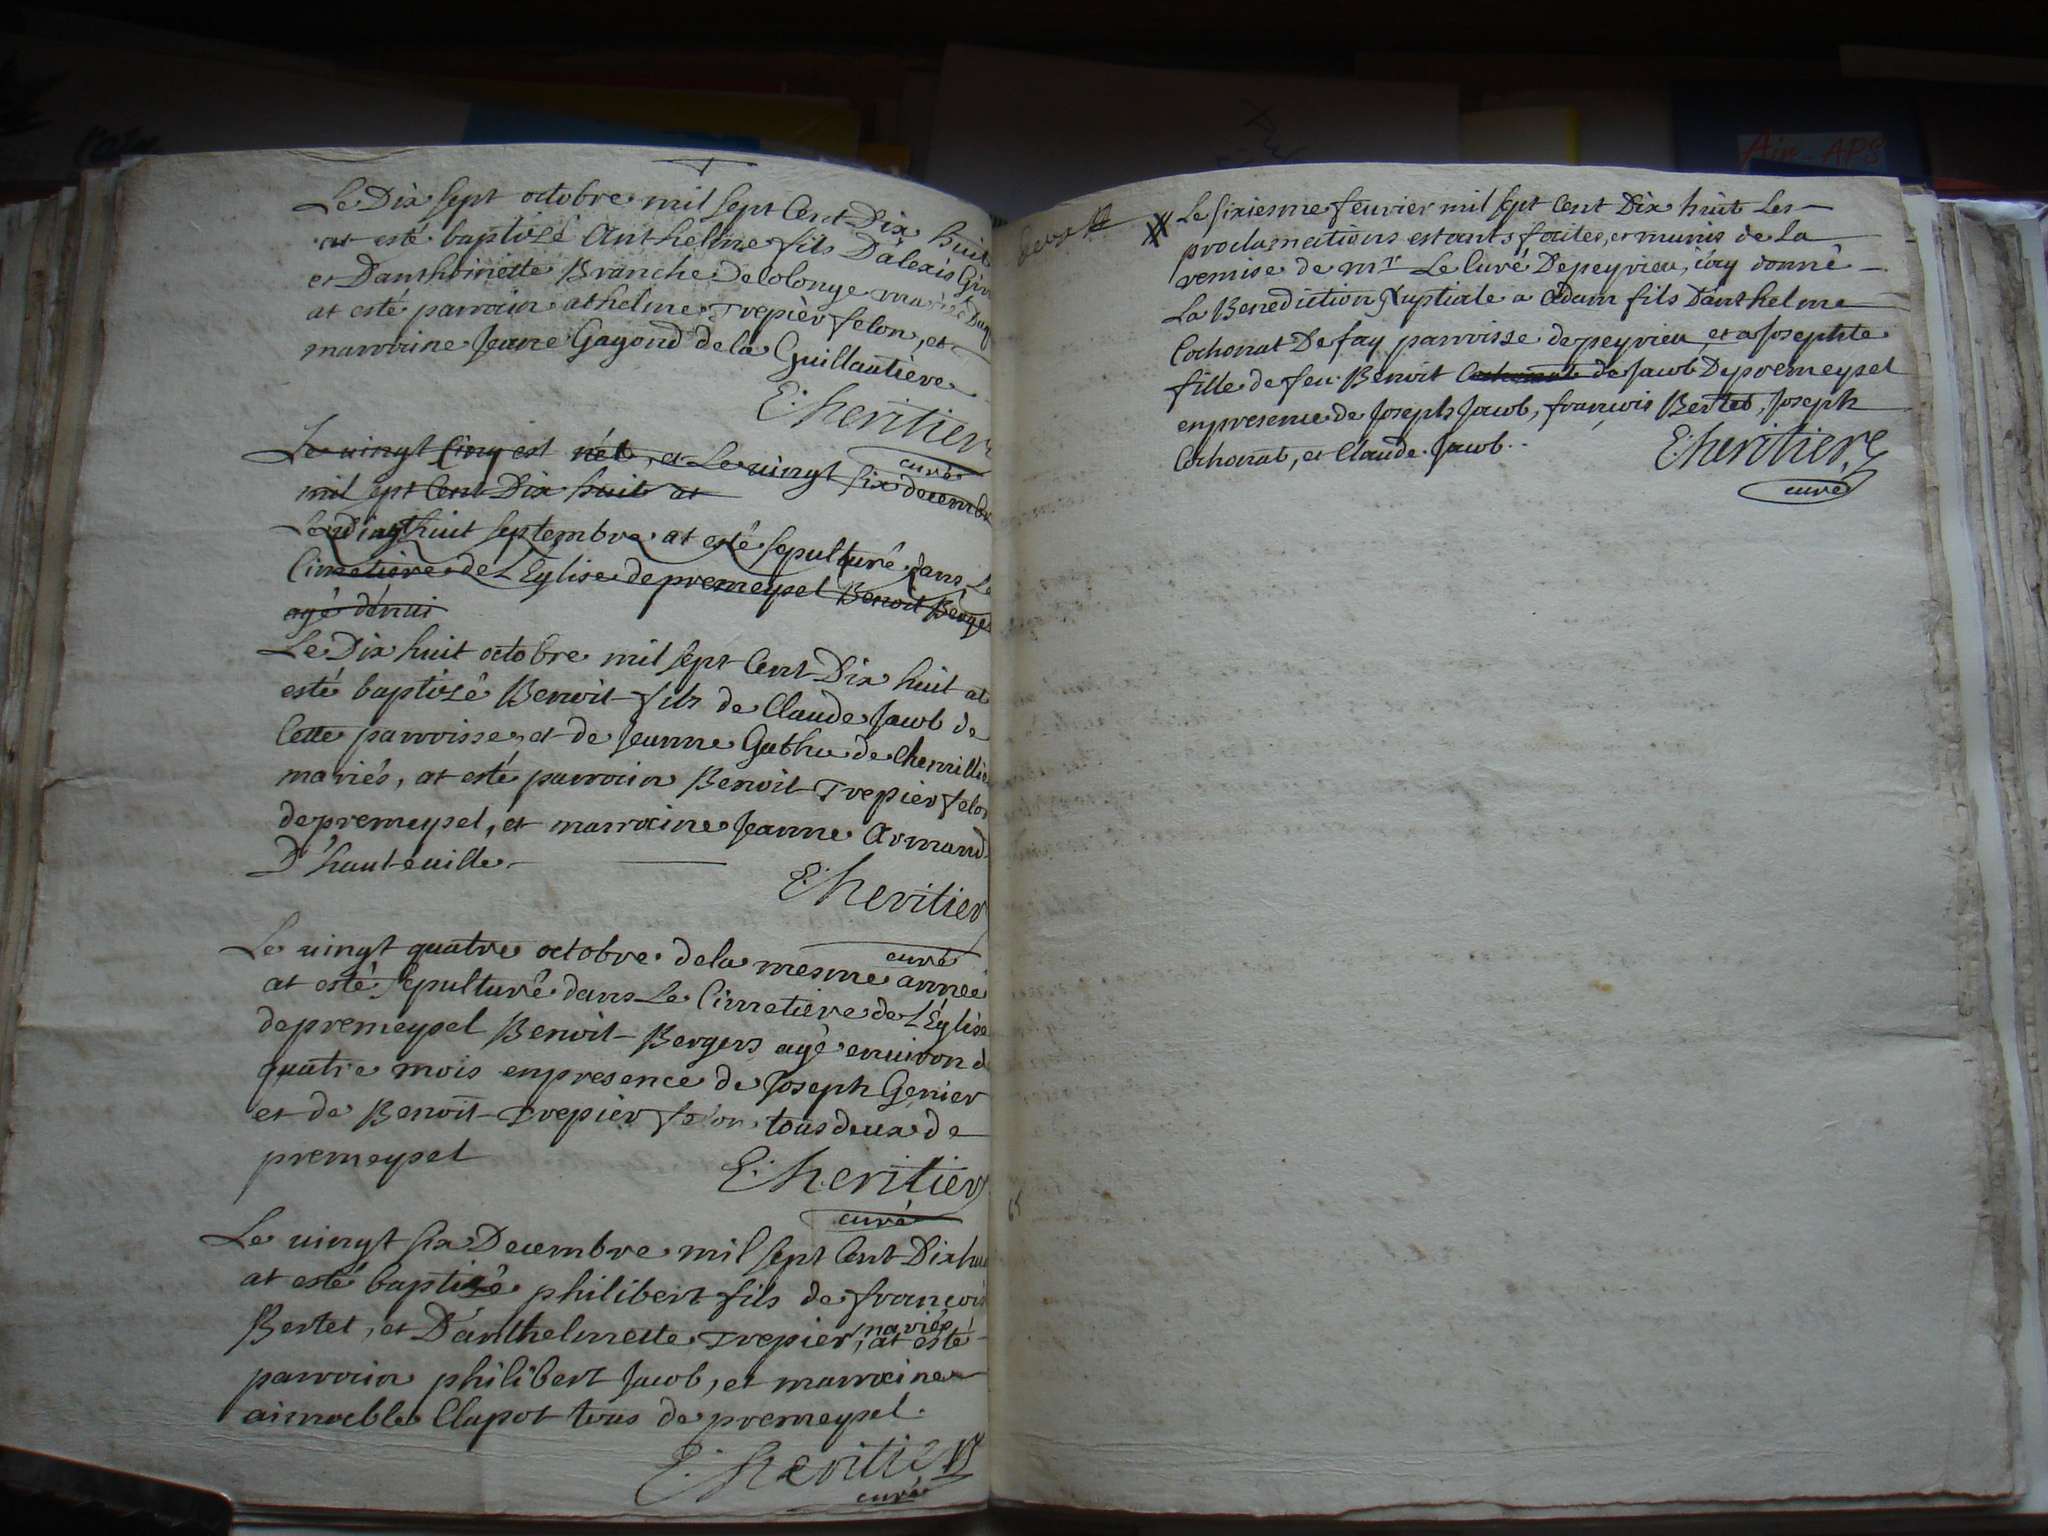 Air-APS
Le Dix sept octobre mil sept Cent Dix huit
at esté baptisé Anthelme fils D'alexis
et D'anthoinette Branche De Colonge mariés
at esté parrain athelme Trepier felon, et
marraine Jeane Gagond de la Guillautière
E: heritier
curé
Le vingt Cinq est né, et Le vingt six decembre
mil sept Cent Dix huit at
Le vingt huit septembre at esté sepulturé dans Le
Cimetiere de L'Eglise de premeysel Benoit Berger
agé d'énui
Le Dix huit octobre mil sept Cent Dix huit at
esté baptisé Benoit fils de Claude Jacob de
Cette parroisse, et de Jeanne Gathu de Chemillieu
mariés, at esté parrain Benoit Trepier felon
de premeysel, et marraine Jeanne Armand
D'hauteuille.
E: heritier
curé
Le vingt quatre octobre de la mesme année
at esté sepulturé dans Le Cimetiere de L'Eglise
de premeysel Benoit Bergers agé enuiron de
quatre mois en presence de Joseph Genier
et de Benoit Trepier felon tous deux de
premeysel
E: heritier
curé
Le vingt six Decembre mil sept Cent Dix huit
at esté baptizé philibert fils de francois
Bertet, et D'anthelmette Trepier, mariés, at esté
parrain philibert Jacob, et marraine
aimable Clapot tous de premeysel.
E: heritier
curé
Le sixiesme feurier mil sept Cent Dix huit Les
proclamations estants faites, et munis de La
remise de mr. Le Curé De peyrieu, i'ay donné
La Benediction Nuptiale a Adam fils D'anthelme
Cochonat De fay parroisse de peyrieu et a Josephte
fille de feu Benoit Cochonat de Jacob De premeysel
en presence de Joseph Jacob, françois Bertet, Joseph
Cochonat, et Claude Jacob.
E: heritier
curé